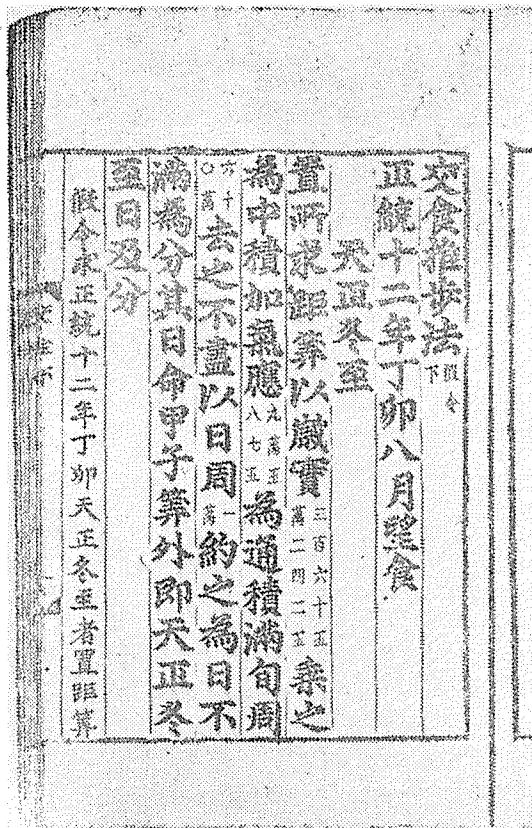 交食推步法假令下
正統十二年丁卯八月望食
天正冬至
置所求距筭以歲實三百六十五萬二四二五乘之
為中積加氣應九萬五八七五為通積滿旬周
六十〇萬去之不盡以日周一萬約之為日不
滿為分其日命甲子筭外即天正冬
至日及分
假令求正統十二年丁卯天正冬至者置距筭